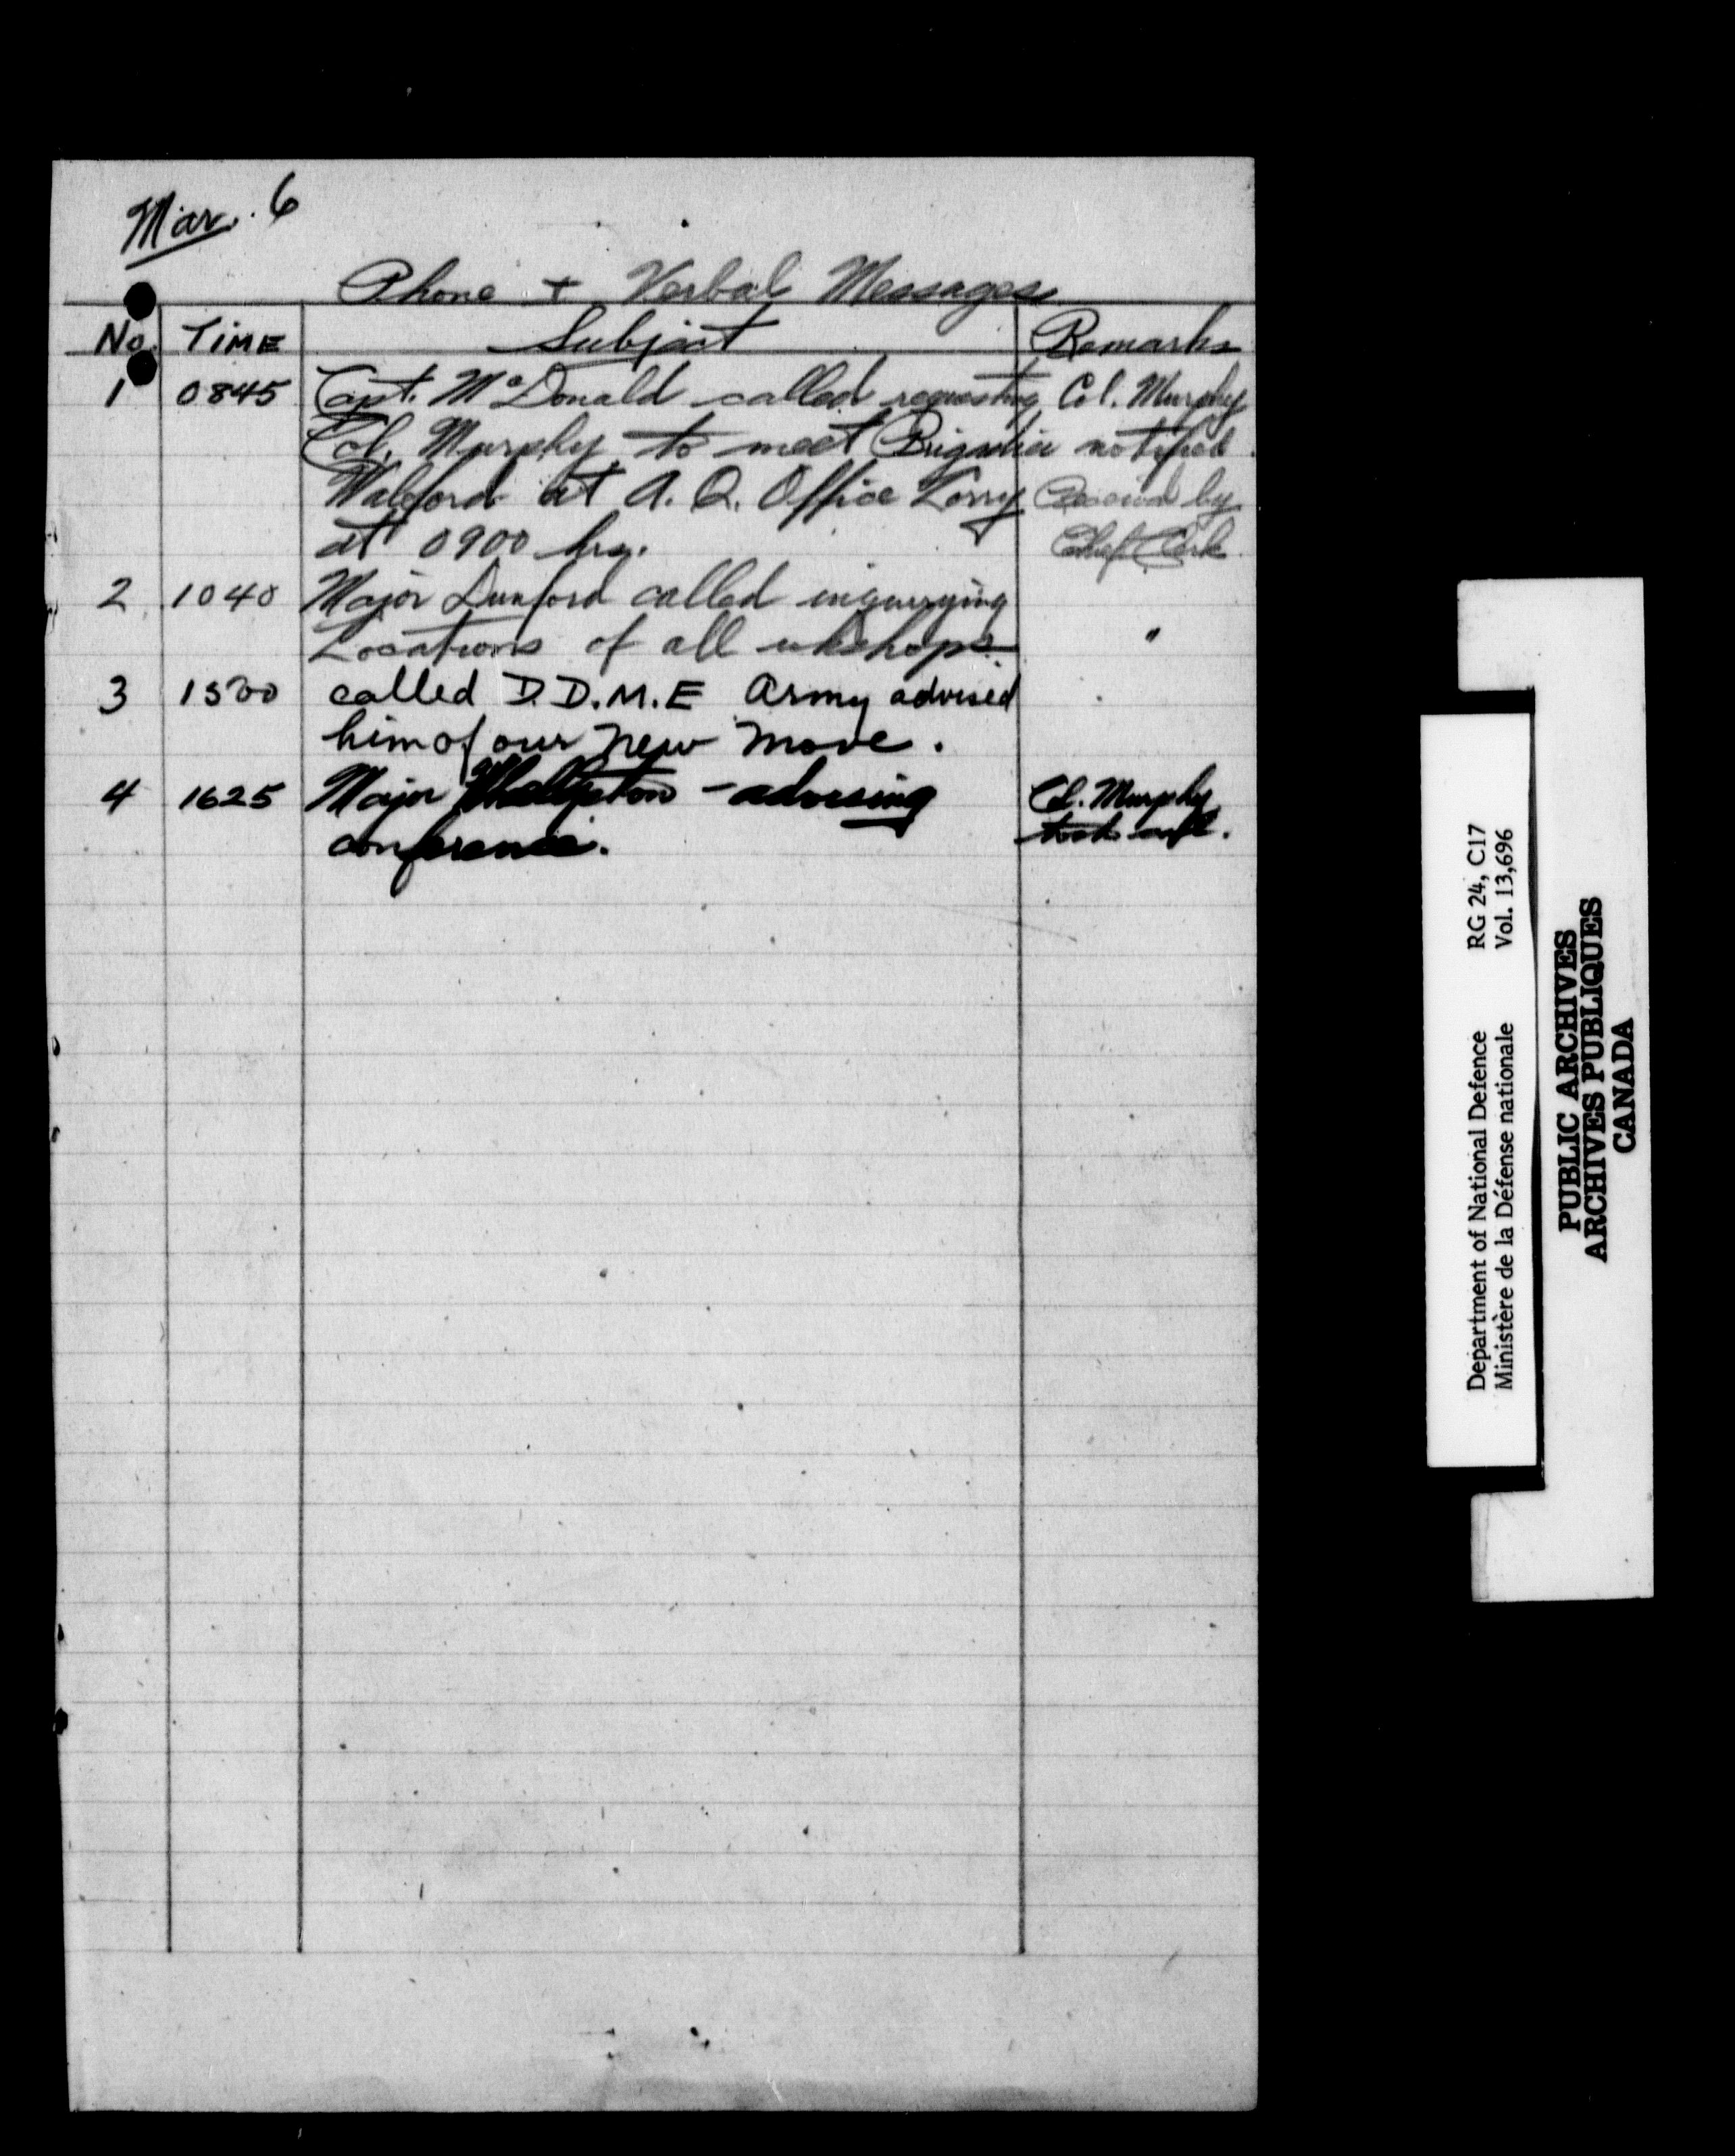 Mar. 6
Phone + Verbal Messages
No. TIME Subject Remarks
1 0845 Capt. McDonald called requesting Col. Murphy
Col. Murphy to meet Brigadier notified.
Walford at A. Q. Office Lorry Received by
at 0900 hrs. Chief Clerk
2 1040 Major Dunford called inquerying
Locations of all wkshops. "
3 1500 called D.D.M.E Army advised
him of our new move.
4 1625 Major - advising Col. Murphy
conference. took call.
Department of National Defence RG 24, C17
Ministère de la Défense nationale Vol. 13,696
PUBLIC ARCHIVES
ARCHIVES PUBLIQUES
CANADA